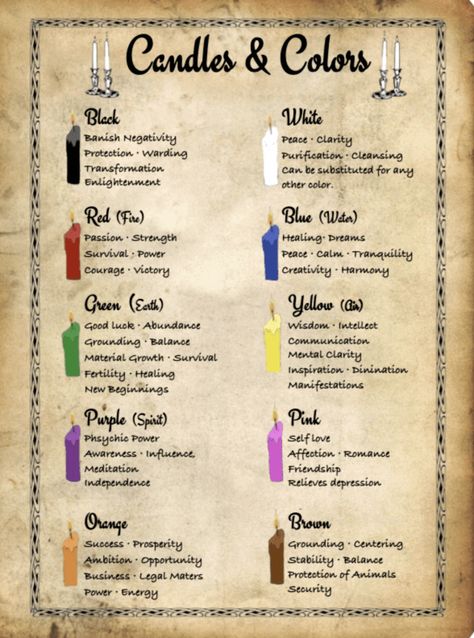 Candles & Colors
Black
Banish Negativity
Protection · Warding
Transformation
Enlightenment
White
Peace · Clarity
Purification · Cleansing
Can be substituted for any
other color.
Red (Fire)
Passion · Strength
Survival · Power
Courage · Victory
Blue (Water)
Healing · Dreams
Peace · Calm · Tranquility
Creativity · Harmony
Green (Earth)
Good luck · Abundance
Grounding · Balance
Material Growth · Survival
Fertility · Healing
New Beginnings
Yellow (Air)
Wisdom · Intellect
Communication
Mental Clarity
Inspiration · Dinination
Manifestations
Purple (Spirit)
Phsychic Power
Awareness · Influence,
Meditation
Independence
Pink
Self love
Affection · Romance
Friendship
Relieves depression
Orange
Success · Prosperity
Ambition · Opportunity
Business · Legal Maters
Power · Energy
Brown
Grounding · Centering
Stability · Balance
Protection of Animals
Security